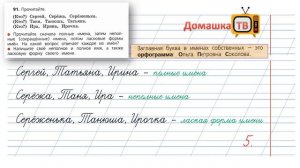 91. Прочитайте.
(Кто?) Сергей, Серёжа, Серёженька.
(Кто?) Таня, Танюша, Татьяна.
(Кто?) Ира, Ирина, Ирочка.
Прочитайте сначала полные имена, затем неполные (сокращённые) имена, потом ласковые формы имён. На какой вопрос отвечает каждое из имён?
Напишите своё неполное и полное имя, а также ласковую форму своего имени.
Домашка
ТВ
Заглавная буква в именах собственных – это
орфограмма Ольга Петровна Соколова.
Сергей, Татьяна, Ирина – полные имена
Серёжа, Таня, Ира – неполные имена
Серёженька, Танюша, Ирочка – лаская форма имени
5.